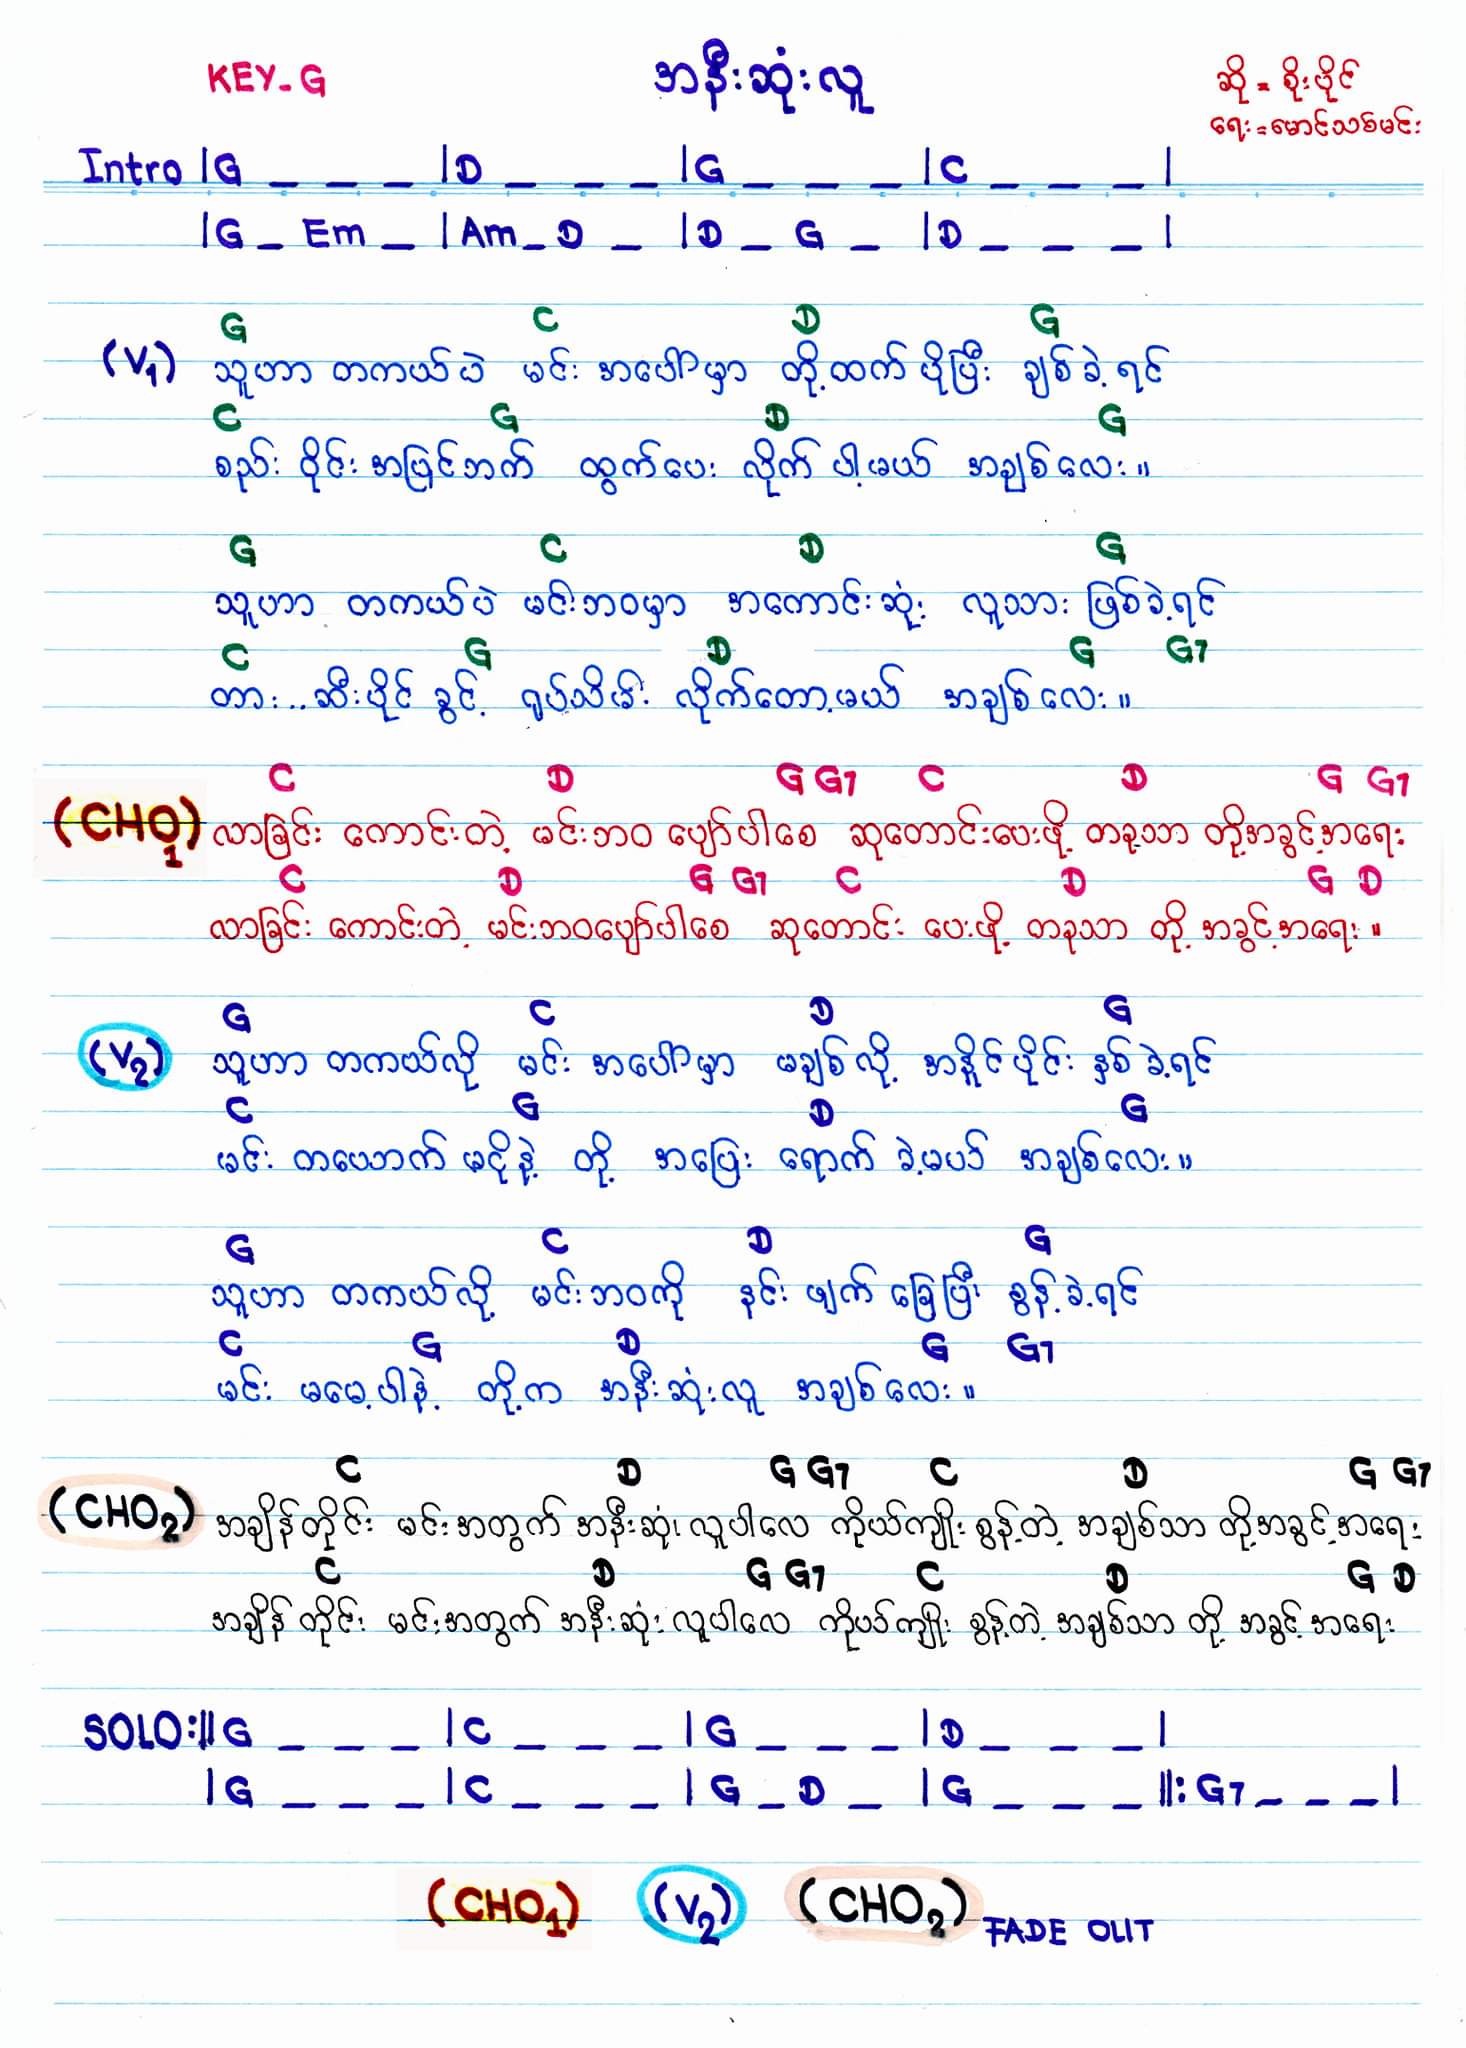 KEY-G
အနီးဆုံးလူ
ဆို = စိုးပိုင်
ရေး = မောင်သစ်မင်း
Intro |G _ _ _ |D _ _ _ |G _ _ _ |C _ _ _ |
|G _ Em _ |Am _ D _ |D _ G _ |D _ _ _ |
G C D G
(V1) သူဟာ တကယ်ပဲ မင်း အပေါ်မှာ တို့ထက် ပိုပြီး ချစ်ခဲ့ရင်
C G D G
စည်း ဝိုင်း အပြင်ဘက် ထွက်ပေး လိုက် ပါ့မယ် အချစ်လေး။
G C D G
သူဟာ တကယ်ပဲ မင်းဘဝမှာ အကောင်းဆုံး လူသား ဖြစ်ခဲ့ရင်
C G D G G7
တား..ဆီးပိုင် ခွင့် ရုပ်သိမ်း လိုက်တော့မယ် အချစ်လေး။
C D G G7 C D G G7
(CHO1) လာခြင်း ကောင်းတဲ့ မင်းဘဝ ပျော်ပါစေ ဆုတောင်းပေးဖို့ တခုသာ တို့အခွင့်အရေး
C D G G7 C D G D
လာခြင်း ကောင်းတဲ့ မင်းဘဝပျော်ပါစေ ဆုတောင်း ပေးဖို့ တခုသာ တို့ အခွင့်အရေး။
G C D G
(V2) သူဟာ တကယ်လို့ မင်း အပေါ်မှာ မချစ်လို့ အနှိုင်ပိုင်း နှစ်ခဲ့ရင်
C G D G
မင်း တပေဘက် မငိုနဲ့ တို့ အပြေး ရောက် ခဲ့မယ် အချစ်လေး။
G C D G
သူဟာ တကယ်လို့ မင်းဘဝကို နင်း ဖျက် ခြေပြီး စွန့်ခဲ့ရင်
C G D G G7
မင်း မမေ့ပါနဲ့ တို့က အနီးဆုံးလူ အချစ်လေး။
C D G G7 C D G G7
(CHO2) အချိန်တိုင်း မင်းအတွက် အနီးဆုံးလူပါလေ ကိုယ်ကျိုးစွန့်တဲ့ အချစ်သာ တို့အခွင့်အရေး
C D G G7 C D G D
အချိန်တိုင်း မင်းအတွက် အနီးဆုံးလူပါလေ ကိုယ်ကျိုး စွန့်တဲ့ အချစ်သာ တို့ အခွင့်အရေး
SOLO:||G _ _ _ |C _ _ _ |G _ _ _ |D _ _ _ |
|G _ _ _ |C _ _ _ |G _ D _ |G _ _ _ ||: G7 _ _ _ |
(CHO1) (V2) (CHO2) FADE OUT